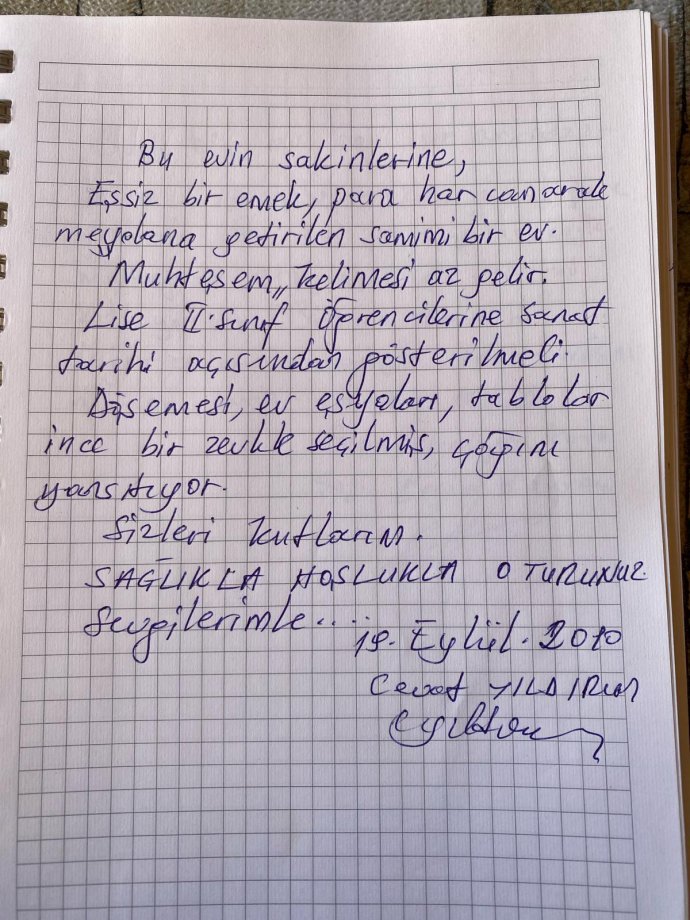 Bu evin sakinlerine,
Eşsiz bir emek, para harcanarak
meydana getirilen samimi bir ev.
Muhteşem,, kelimesi az gelir.
Lise II. sınıf öğrencilerine sanat
tarihi açısından gösterilmeli.
Döşemesi, ev eşyaları, tablolar
ince bir zevkle seçilmiş, çağını
yansıtıyor.
Sizleri kutlarım.
SAĞLIKLA HOŞLUKLA OTURUNUZ
Sevgilerimle...
19. Eylül. 2010
Cevat YILDIRIM